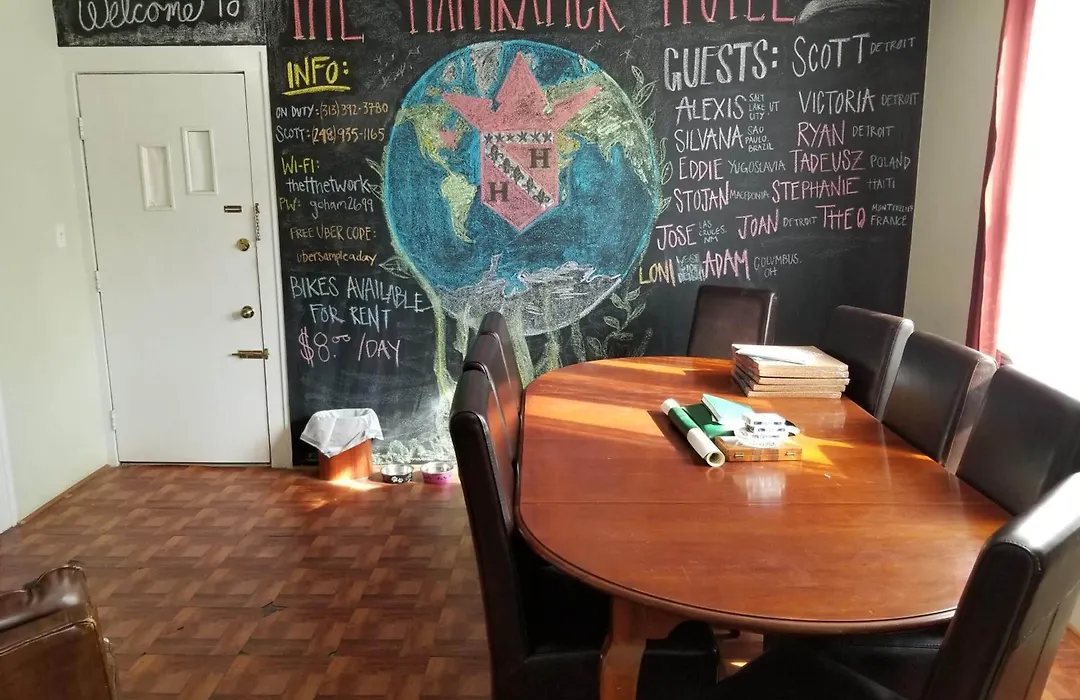 Welcome To
THE HAMTRAMCK HOTEL
INFO:
ON DUTY: (313) 392-3780
SCOTT: (248) 935-1165
WI-FI:
thettnetwork
PW: goham2699
FREE UBER CODE:
ubersampleaday
BIKES AVAILABLE
FOR RENT
$8.00 /DAY
H
H
GUESTS:
SCOTT DETROIT
ALEXIS SALT LAKE CITY UT
VICTORIA DETROIT
SILVANA SAO PAULO, BRAZIL
RYAN DETROIT
EDDIE YUGOSLAVIA
TADEUSZ POLAND
STOJAN MACEDONIA
STEPHANIE HAITI
JOSE LAS CRUCES, NM
JOAN DETROIT
THEO MONTPELLIER FRANCE
LONI
ADAM COLUMBUS, OH